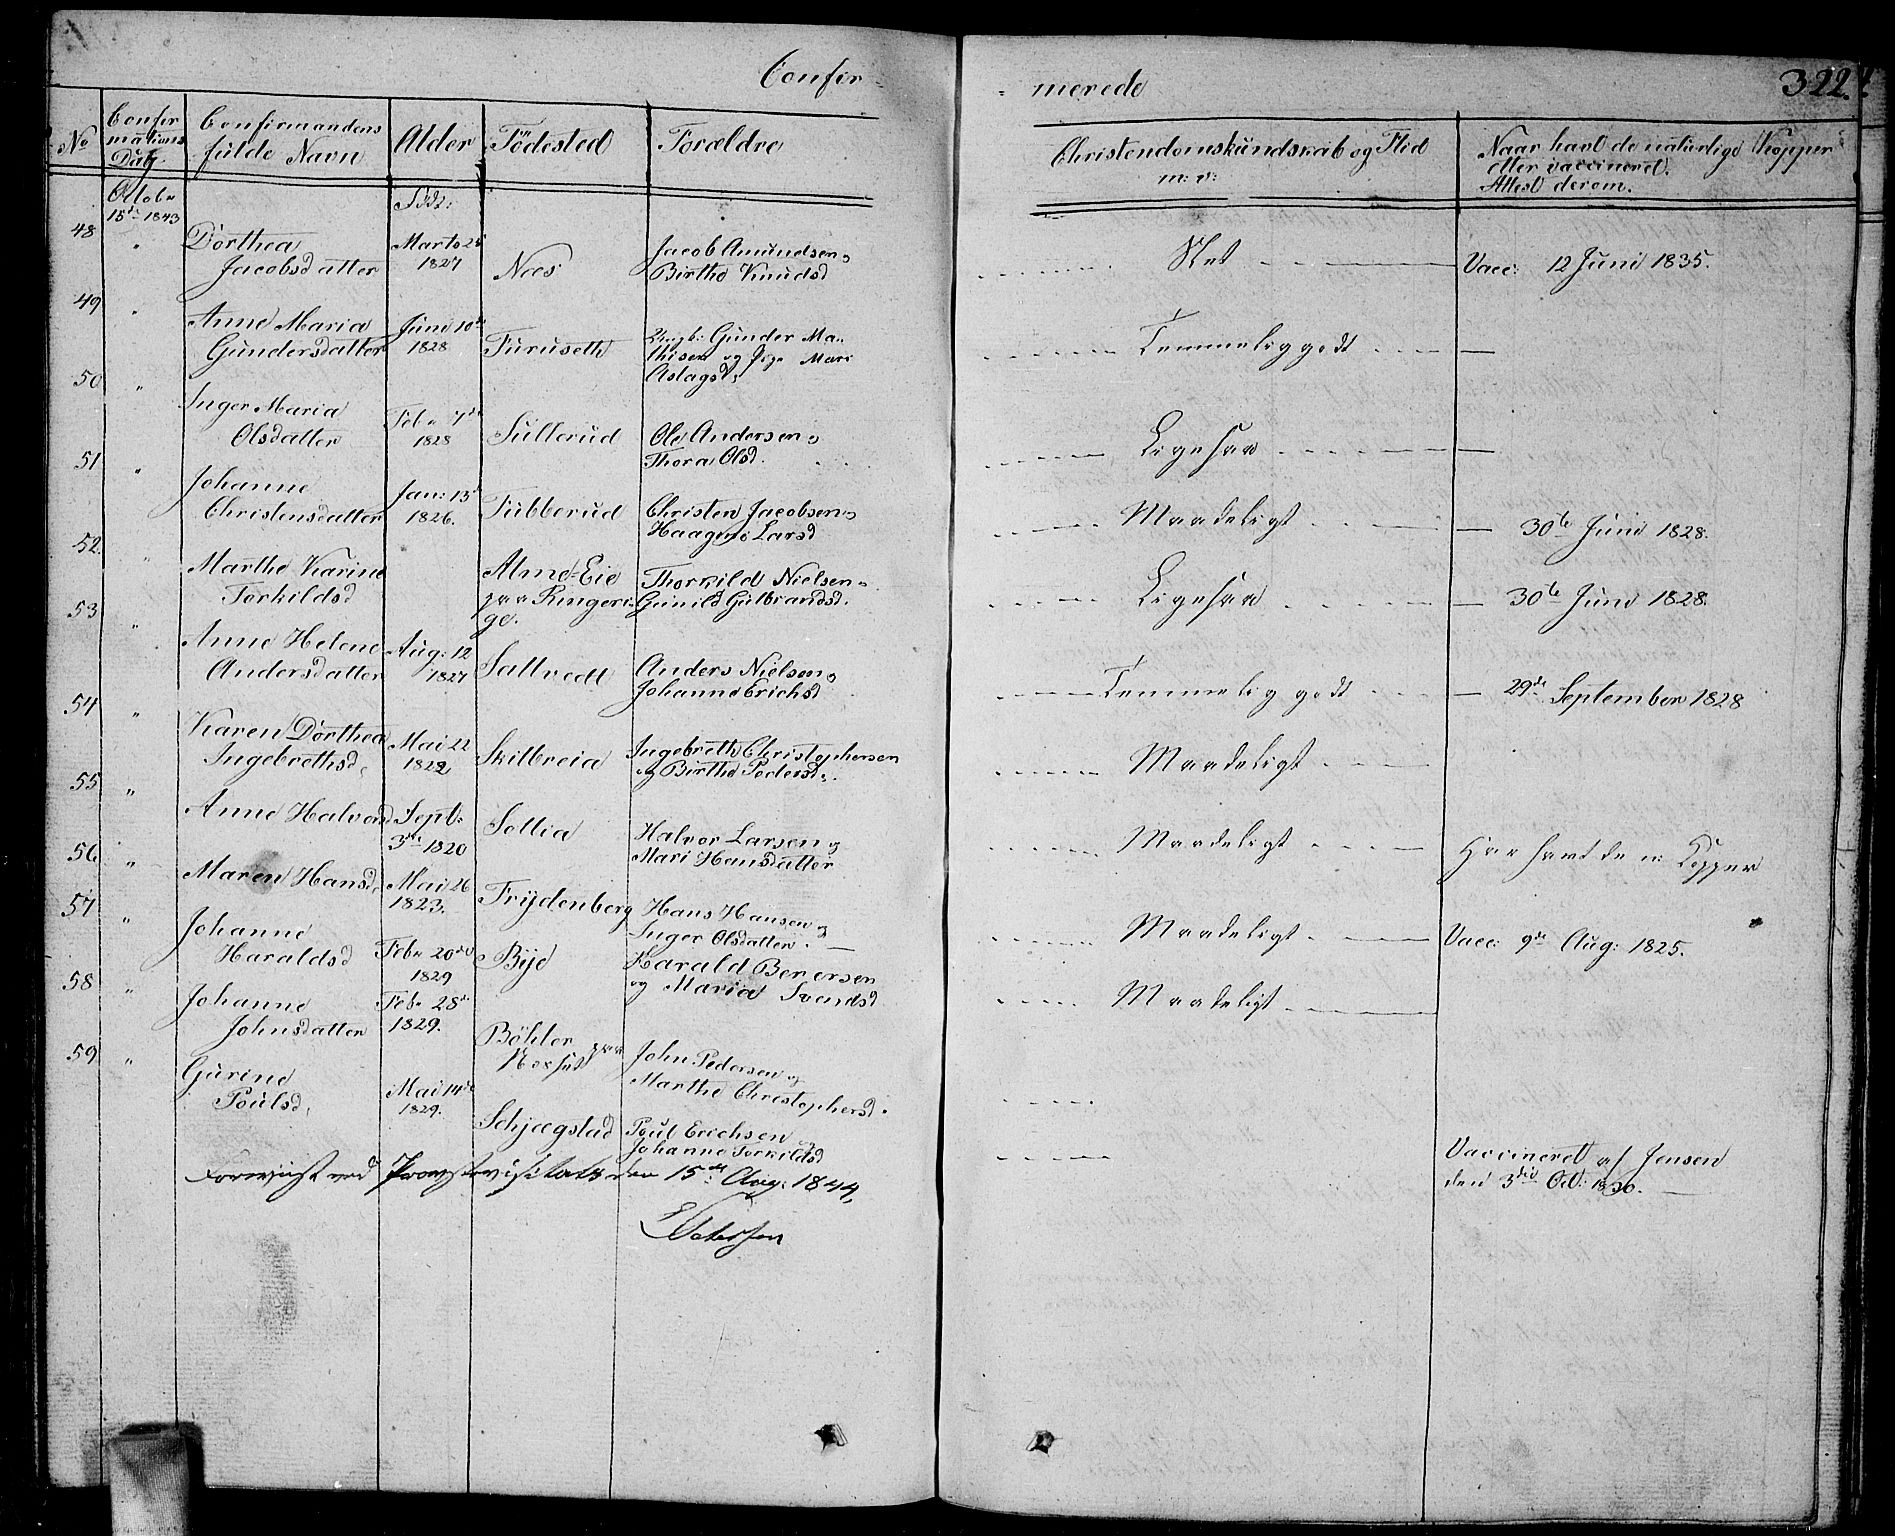 Confir-
merede
322.
No
Confir
mations
Dag.
Confirmandens
fulde Navn
Alder
Födested
Forældre
Christendomskundskab og Flid
m: v:
Naar havt de naturlige Kopper
eller vaccineret.
Attest derom.
Octobr
15de 1843
Född:
48 " Dorthea
Jacobsdatter
Marts 25
1827
Næs
Jacob Amundsen og
Birthe Knudsd
Slet
Vacc: 12 Juni 1835.
49 " Anne Maria
Gundersdatter
Juni 10de
1828
Furuseth
Ungk: Gunder Ma-
thisen og Pige Mari
Aslagsd:
Temmelig godt
50 " Inger Maria
Olsdatter
Feb. 7de
1828
Sullerud
Ole Andersen og
Thora Olsd.
Ligesaa
51 " Johanne
Christensdatter
Jan: 13de
1826.
Tubberud
Christen Jacobsen og
Haagine Larsd
Maadeligt
30te Juni 1828.
52. " Marthe Karine
Torkildsd
Alme-Eie
paa Ringeri-
ge.
Thorkild Nielsen og
Gunild Gulbrandsd.
Ligesaa
30te Juni 1828.
53 " Anne Helene
Andersdatter
Aug: 12
1827
Saltvedt
Anders Nielsen og
Johanne Erichsd
Temmelig godt
29de September 1828
54 " Karen Dorthea
Ingebrethsd,
Mai 22
1822
Skilbreia
Ingebreth Christophersen
og Birthe Pedersd.
Maadeligt
55 " Anne Halvorsd
Sept:
3de 1820
Sollia
Halvor Larsen og
Mari Hansdatter
Maadeligt
Har havt de n: Kopper
56 " Maren Hansd,
Mai 26
1823.
Frydenberg
Hans Hansen og
Inger Olsdatter.
Maadeligt
Vacc: 9de Aug: 1825.
57 " Johanne
Haraldsd
Feb. 20de
1829
Bye
Harald Berersen
og Maria Svendsd
Maadeligt
58 " Johanne
Johnsdatter
Feb. 28de
1829.
Böhler paa
Nersut
John Pedersen og
Marthe Christophersd.
59 " Gurine
Poulsd,
Mai 14de
1829.
Schjægstad
Poul Erichsen og
Johanne Torkildsd
Vaccineret af Jensen
den 3die Oct: 1830.
Foreviist ved Provstevisitats den 15de Aug: 1844,